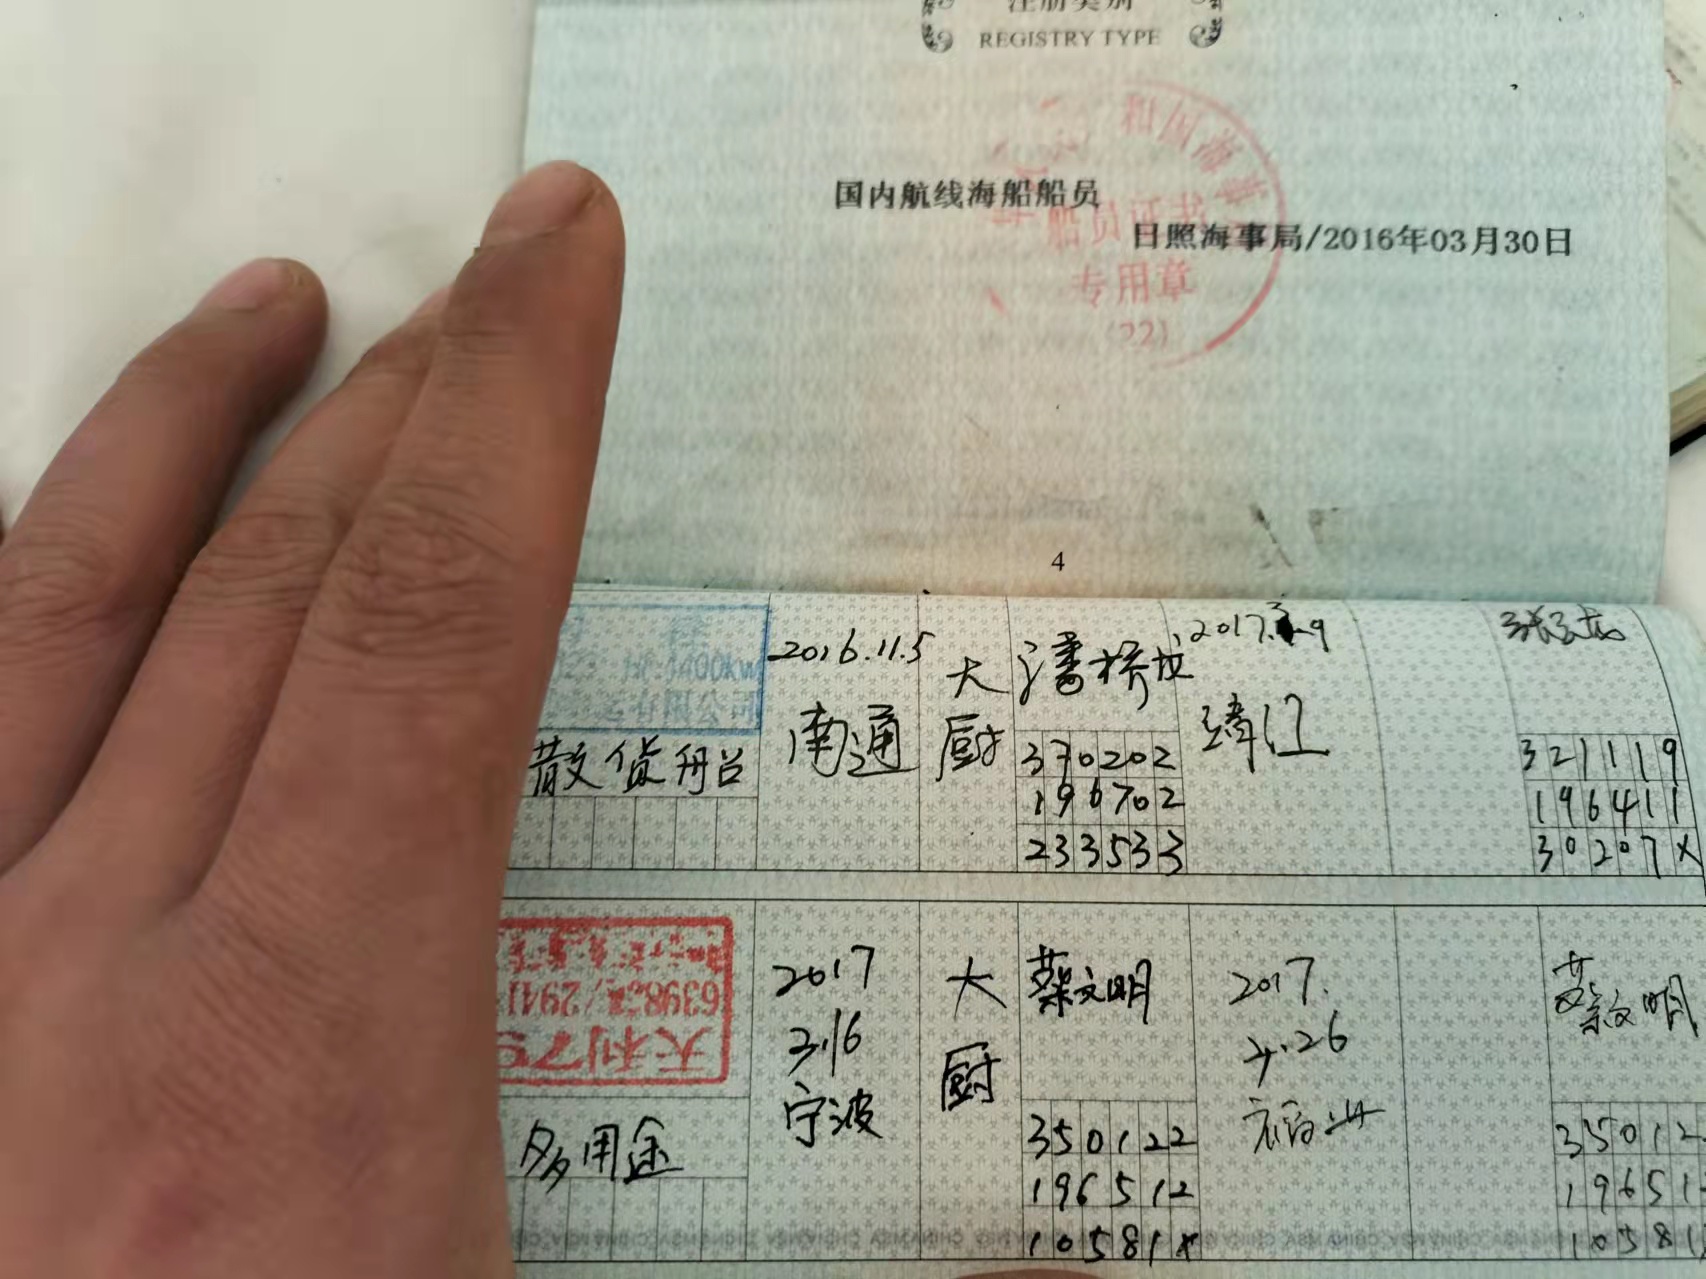 注册类别
REGISTRY TYPE
和国海事
船员证书
专用章
(22)
国内航线海船船员
日照海事局/2016年03月30日
4
1400kw
有限公司
散货船
2016.11.5
南通
大
厨
370202
196702
233533
2017.3.9
靖江
321119
196411
30207X
6398 /2941
大利75
多用途
2017
3.16
宁波
大
厨
蔡文明
350122
196512
10581X
2017.
4.26
福州
蔡文明
35012
19651
10581